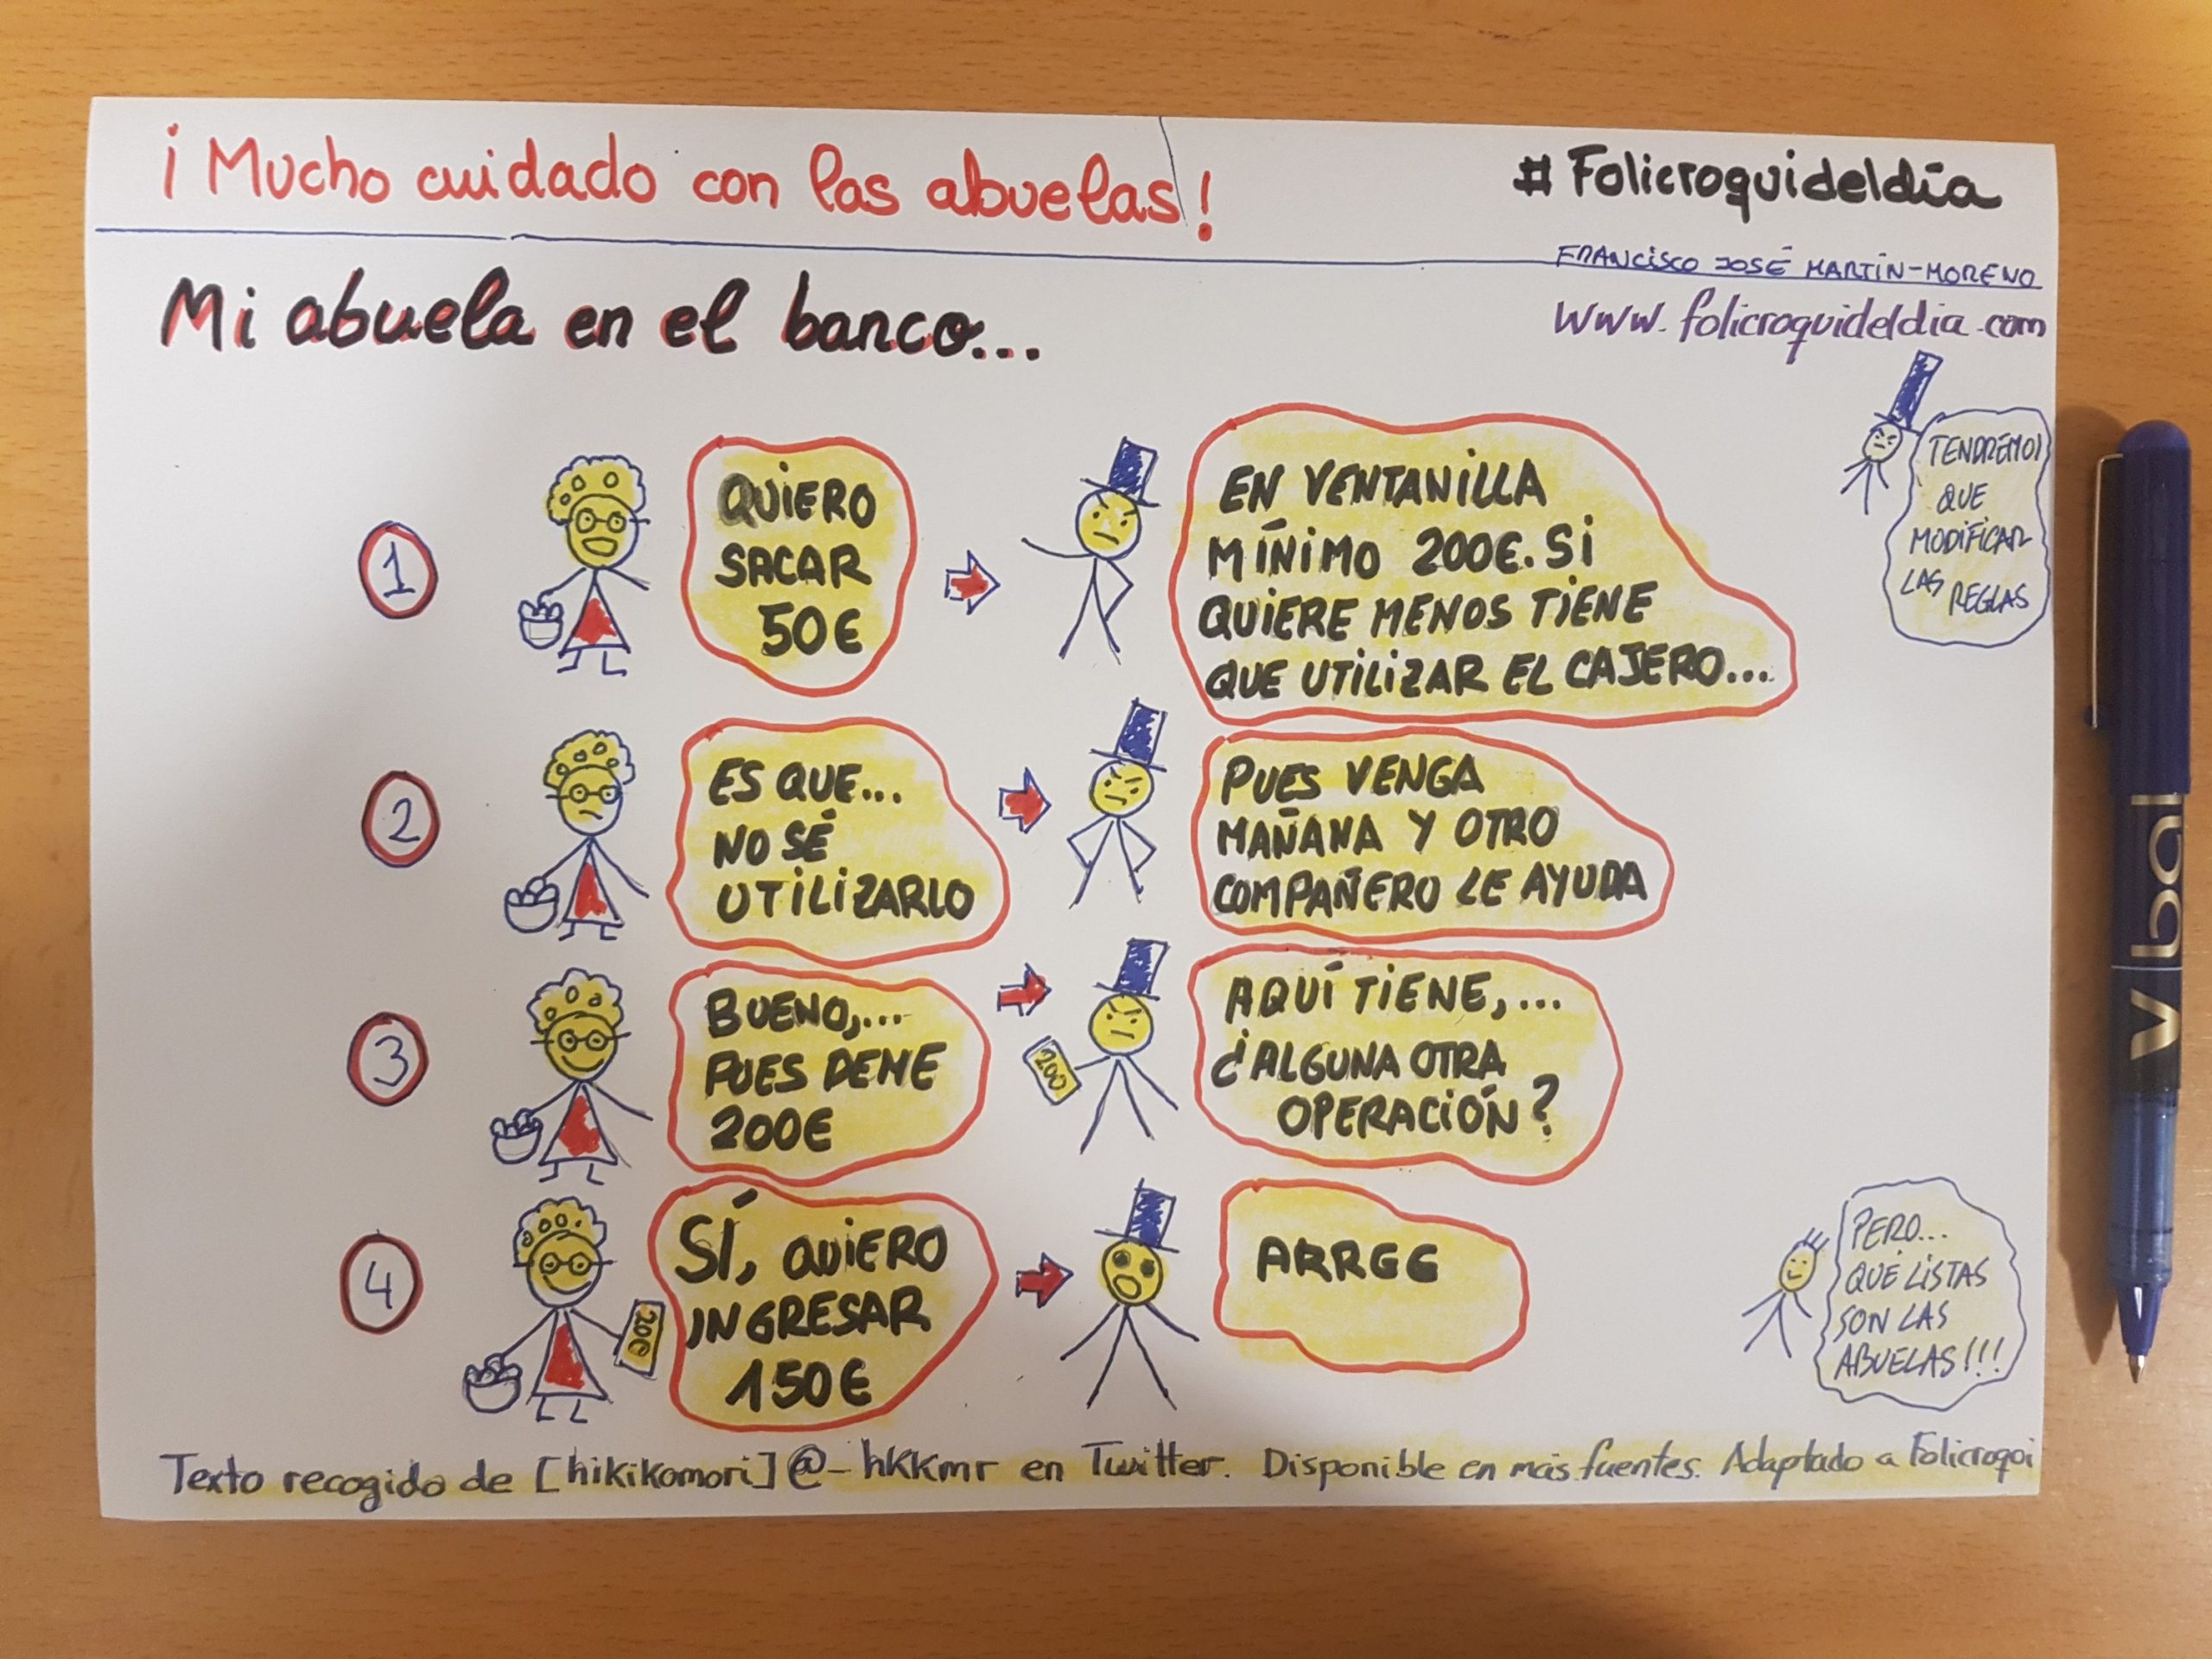 ¡Mucho cuidado con las abuelas!
#Folicroquideldía
FRANCISCO JOSÉ MARTÍN-MORENO
www.folicroquideldia.com
Mi abuela en el banco...
TENDREMOS
QUE
MODIFICAR
LAS REGLAS
1
QUIERO
SACAR
50€
EN VENTANILLA
MÍNIMO 200€. SI
QUIERE MENOS TIENE
QUE UTILIZAR EL CAJERO...
2
ES QUE...
NO SÉ
UTILIZARLO
PUES VENGA
MAÑANA Y OTRO
COMPAÑERO LE AYUDA
3
BUENO,...
PUES DEME
200€
200
AQUÍ TIENE,...
¿ALGUNA OTRA
OPERACIÓN?
4
200
SÍ, QUIERO
INGRESAR
150€
ARRGG
PERO...
QUÉ LISTAS
SON LAS
ABUELAS!!!
Texto recogido de [hikikomori]@_hkkmr en Twitter. Disponible en más fuentes. Adaptado a Folicroqui
V ball